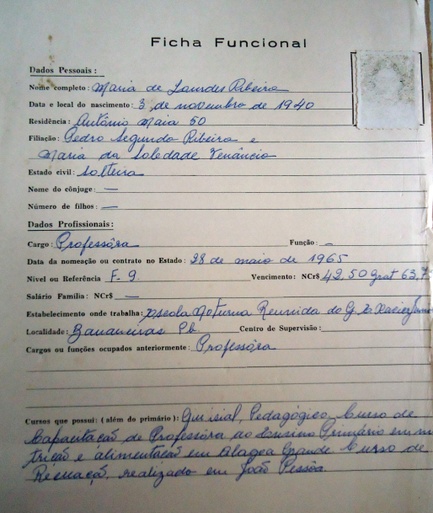 Ficha Funcional
Dados Pessoais:
Nome completo: Maria de Lourdes Ribeiro
Data e local do nascimento: 3 de novembro de 1940
Residência: Antônio Maia 50
Filiação: Pedro Segundo Ribeiro e
Maria da Soledade Venâncio
Estado civil: Solteira
Nome do cônjuge: —
Número de filhos: —
Dados Profissionais:
Cargo: Professôra Função: —
Data da nomeação ou contrato no Estado: 28 de maio de 1965
Nível ou Referência F. 9 Vencimento: NCr$ 42,50 Grat 63,7
Salário Família: NCr$ —
Estabelecimento onde trabalha: Escola Noturna Reunida do G. E. Xavier
Localidade: Bananeiras Pb. Centro de Supervisão:
Cargos ou funções ocupados anteriormente: Professôra
Cursos que possui: (além do primário): Pedagógico, Curso de
Capacitação de Professôra ao Ensino Primário em nu
trição e alimentação em Alagoa Grande Curso de
realizado em João Pessôa